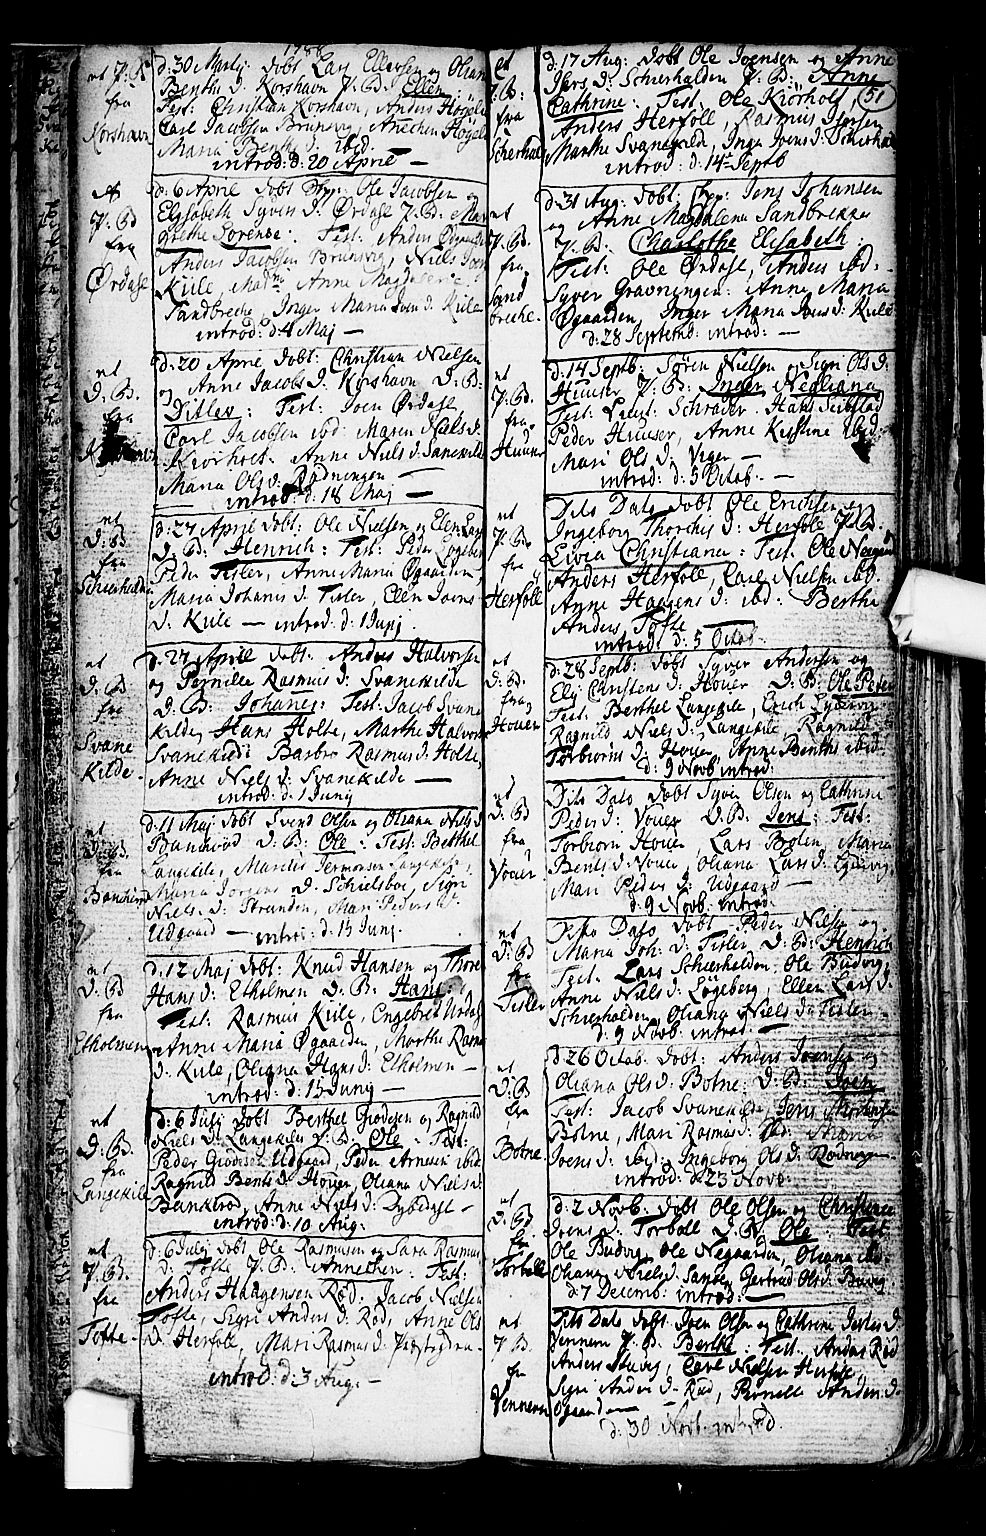 1788
et P: B
fra
Korshavn
d: 30 Martj dobt Lars Ellevsen og Oliana
Benthe d: Korshavn P: B: Ellen
Test: Christian Korshavn, Anders Høgele
Carl Jacobsen Brunsvig, Anechen Høgele
Maria Benthe d: ibid:
introd: d: 20 April —
et
P: B
fra
Ørdahl
d: 6 April dobt Styr: Ole Jacobsen og
Elisabeth Syvers d: Ørdahl P: B: Mar
grethe Sorense: Test: Anders Øgaarden
Anders Jacobsen Brunsvig, Niels Joen
Kiile, Mad: Anne Magdalene
Sandbreche Inger Maria Joen d: Kiile
introd: d: 4 Maj —
et
D: B:
fra
d: 20 April dobt: Christian Nielsen
og Anne Jacobs d: Korshavn D: B:
Ditlev: Test: Joen Ørdahl
Carl Jacobsen ibd: Maren Niels d:
Kiørholt. Anne Niels d: Svanekilde
Maria Ols d: Rødningen —
introd: d: 18 Maj —
et
D: B
fra
Schierholden
d: 27 April dobt: Ole Nielsen og Elen Lars
d: B: Henrich: Test: Peder Løgeberg
Peder Tisler, Anne Maria Øgaarden,
Maria Johanis d: Tisler, Ellen Joens
d: Kiile — introd: d: 1 Junj.
et
D: B
fra
Svane
Kilde
d: 27 April dobt: Anders Halvorsen
og Pernille Rasmus d: Svanekilde
D: B: Johannes: Test: Jacob Svane
kilde, Hans Holte, Marthe Halvors
Svanekilde Barbro Rasmus d: Holte,
Anne Niels d: Svanekilde —
introd: d: 1 Junj
et
D: B.
fra
d: 11 Maj dobt Svend Olsen og Oliana Niels d
Banerød D: B: Ole: Test: Berthel
Langekile,
Maria Jorgens d: Schielsboe, Sigri
Niels d: Stranden, Mari Peders d.
Udgaard — introd: d: 15 Junj.
et
D: B
fra
Etholmen
d: 12 Maj dobt: Knud Hansen og Thore
Hans d: Etholmen D: B: Hans:
Test: Rasmus Kiile, Engebret Urdahl
Anne Maria Øgaarden, Marthe Rasm
d: Kiile, Oliana Hans d: Etholmen —
introd: d: 15 Junj —
et
D: B:
fra
Langekile
d: 6 Julj dobt Berthel Giordesen og Ragnild
Niels d: Langekile D: B: Ole: Test:
Peder Giordesen Udgaard, Peder Arnesen ibid:
Ragnild Bents d: Houer, Oliana Niels d:
Banekrød, Anne Niels d: Dybedahl —
introd: d: 10 Aug:
et
P: B:
fra
Tofte
d: 6 Julj dobt Ole Rasmusen og Sara Rasmus
d: Tofte P: B: Annechen: Test:
Anders Haagensen Rød: Jacob Nielsen
Tofte, Sigri Anders d: Rød, Anne Ols
d: Herføll, Mari Rasmus d:
introd: d: 3 Aug: —
et
P: B:
fra
Schierhold
d: 17 Aug: dobt Ole Joensen og Anne
Ifvers d: Schierholden P: B: Anne
Cathrine: Test. Ole Kiørholt,
51
Anders Herføll, Rasmus Iversen
Marthe Svanekild, Inga Joens d: Schierhol
introd: d: 14 Septb
et
P: B.
fra
Sand
breche.
d: 31 Aug: dobt: Styr: Jens Johansen
og Anne Magdalena Sandbrekke
P: B: Charlothe Elisabeth:
Test: Ole Ørdahl, Anders ibd:
Syver Gravningen: Anne Maria
Øgaarden, Inger Maria Joens d: Kiile
d: 28 Septemb: introd: —
et
P: B.
fra
Huuser
d: 14 Septb: Søren Nielsen og Sigri Ols d:
Huuser P: B: Inger
Test: Schrøder. Hans
Peder Huuser, Anne Kirstine ibid:
Mari Ols d: Viger —
introd: d: 5 Octob. —
et
P: B.
fra
Herføll
Dito Dato dobt Ole Erichsen og
Ingeborg Thorchis d: Herføll P: B:
Livia Christiana: Test. Ole Neegaar
Anders Herføll, Carl Nielsen ibd.
Anne Haagens d: ibd: Berthe
Anders Tofte
introd: d: 5 Octob.
et
D: B:
fra
Houer
d: 28 Septb: dobt Syver Andersen og
Eli Christens d: Houer D: B: Ole Peder
Test: Berthel Langekile, Erich
Ragnild Niels d: Langekile, Ragnild
Torbiørns d: Houer, Anne Benths ibid:
d: 9 Novb introd:
et
D: B
fra
Vouer.
Dito Dato dobt Syver Olsen og Cathrine
Peders d: Vouer D: B: Jens: Test:
Torbiorn Houer, Lars Botnen, Maria
Bents d: Vouer, Oliana Lars d:
Mari Peders d: Udgaard —
d: 9 Novb. introd:
et
D: B
fra
Tisler
Dito Dato dobt — Peder Nielsen og
Maria Joh: d: Tisler, D: B: Hendrich
Test: Lars Schierholden, Ole Budvig,
Anne Niels d: Løgeberg, Ellen Lars d:
Schierholden, Oliana Niels d: Tisler
d: 9 Novb. introd: —
et
D: B
fra
Botne
d: 26 Octob. dobt: Anders Joensen og
Oliana Ols d: Botne: D: B: Joen
Test: Jacob Svanekilde, Jens
Botne, Mari Rasmus d: ibd: Maria
Joens d: ibid: Ingeborg Ols d: Rødning —
introd: d: 23 Novb:
et
D: B
fra
Torbøll
d: 2 Novb: dobt Ole Olsen og Christence
Jens d: Torbøll D: B: Ole: Test:
Ole Budvig, Ole Neegaarden, Oliana ibd
Oliana Niels d: Sanden Gertrud Ols d: Buvig
d: 7 Decemb: introd: —
et
P: B
fra
Venneren
Dito Dato dobt Joen Olsen og Cathrine Joens d
Venneren P: B: Berthe Test. Anders Rød
Anders Stuvig, Carl Nielsen Herføll,
Sigri Anders d: Rød, Pernelle Anders: d:
Øgaarden —
d: 30 Novb. introd.